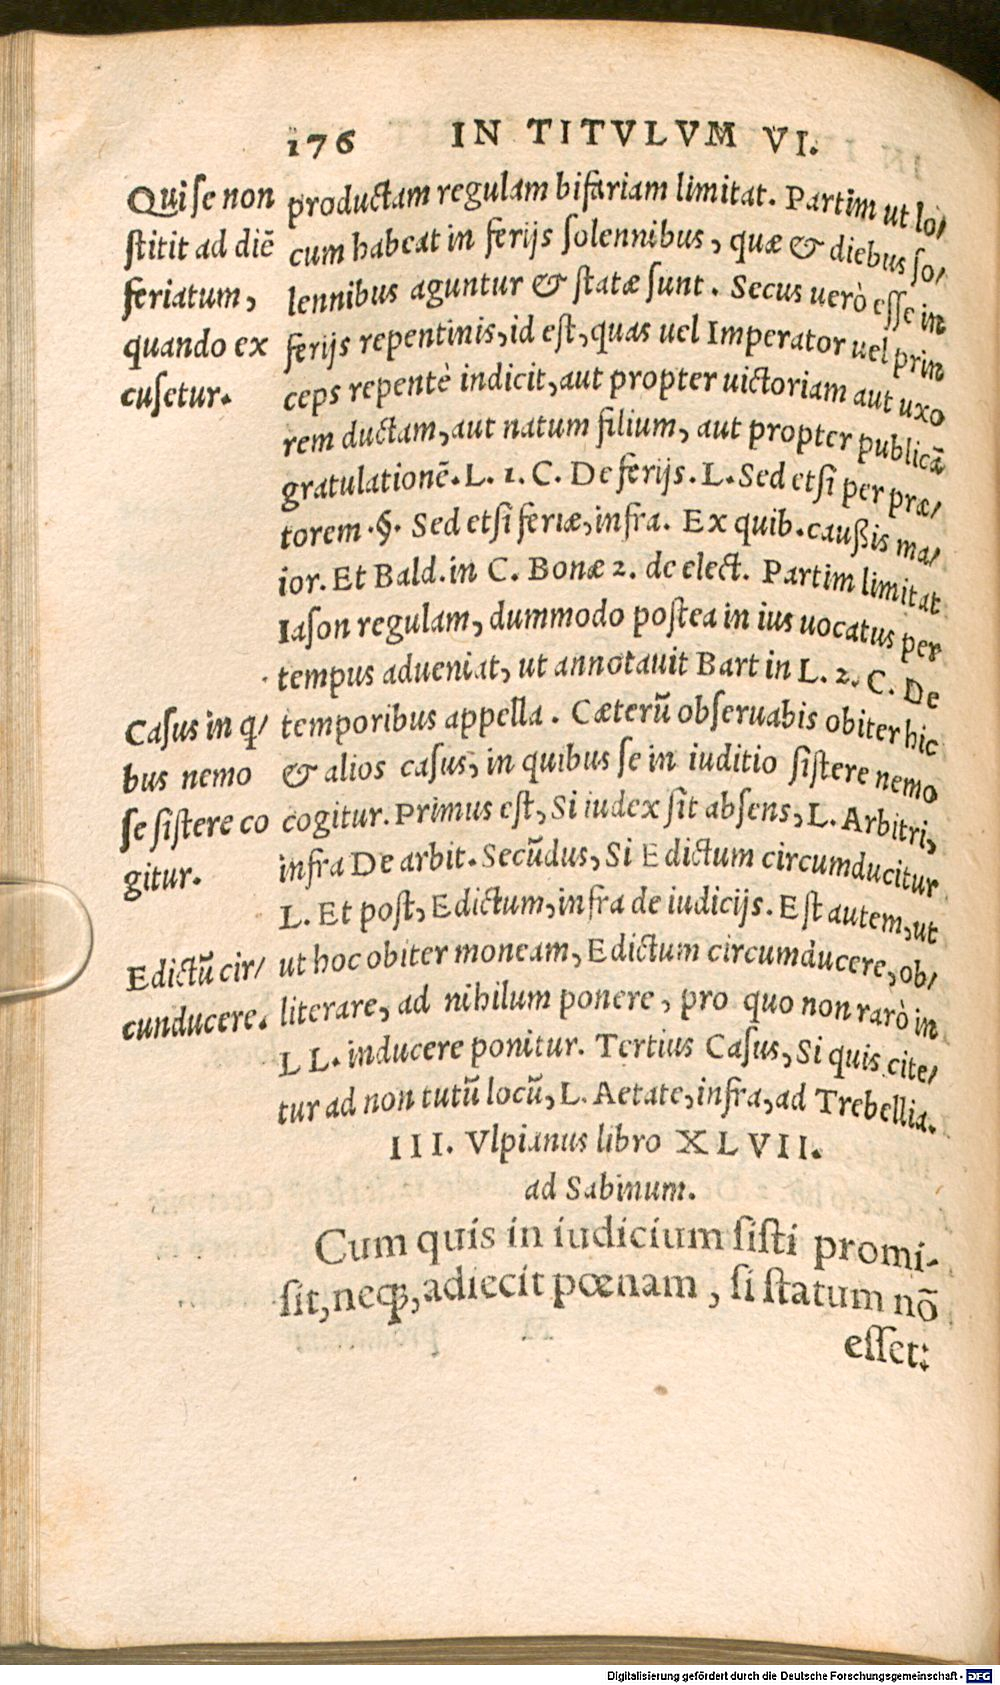 176 IN TITVLVM VI.
Qui se non
stitit ad diē
feriatum,
quando ex
cusetur.
productam regulam bifariam limitat. Partim ut lo/
cum habeat in ferijs solennibus, quæ & diebus so/
lennibus aguntur & statæ sunt. Secus uerò esse in
ferijs repentinis, id est, quas uel Imperator uel prin
ceps repentè indicit, aut propter uictoriam aut uxo
rem ductam, aut natum filium, aut propter publicā
gratulationē. L. 1. C. De ferijs. L. Sed etsi per præ/
torem .§. Sed etsi feriæ, infra. Ex quib. caußis ma/
ior. Et Bald. in C. Bonæ 2. de elect. Partim limitat
Iason regulam, dummodo postea in ius uocatus per
tempus adueniat, ut annotauit Bart in L. 2. C. De
Casus in q/
bus nemo
se sistere co
gitur.
temporibus appella. Cæterū obseruabis obiter hic
& alios casus, in quibus se in iuditio sistere nemo
cogitur. Primus est, Si iudex sit absens, L. Arbitri,
infra De arbit. Secūdus, Si Edictum circumducitur
L. Et post, Edictum, infra de iudicijs. Est autem, ut
Edictū cir/
cunducere.
ut hoc obiter moneam, Edictum circumducere, ob/
literare, ad nihilum ponere, pro quo non rarò in
L L. inducere ponitur. Tertius Casus, Si quis cite/
tur ad non tutū locū, L. Aetate, infra, ad Trebellia.
III. Vlpianus libro XLVII.
ad Sabinum.
Cum quis in iudicium sisti promi-
sit, neq;, adiecit pœnam, si statum nō
esset:
Digitalisierung gefördert durch die Deutsche Forschungsgemeinschaft - DFG